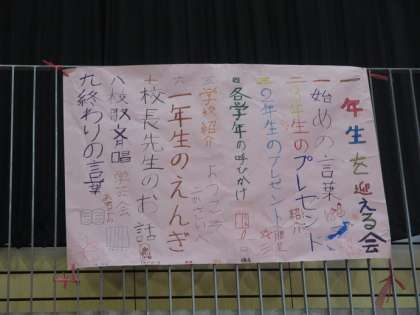 一年生を迎える会
一 始めの言葉
二 年生のプレゼント
三 2年生のプレゼント
四 各学年の呼びかけ
五 学校紹介 ようこそ
六 一年生のえんぎ
七 校長先生のお話
八 校歌斉唱
九 終わりの言葉